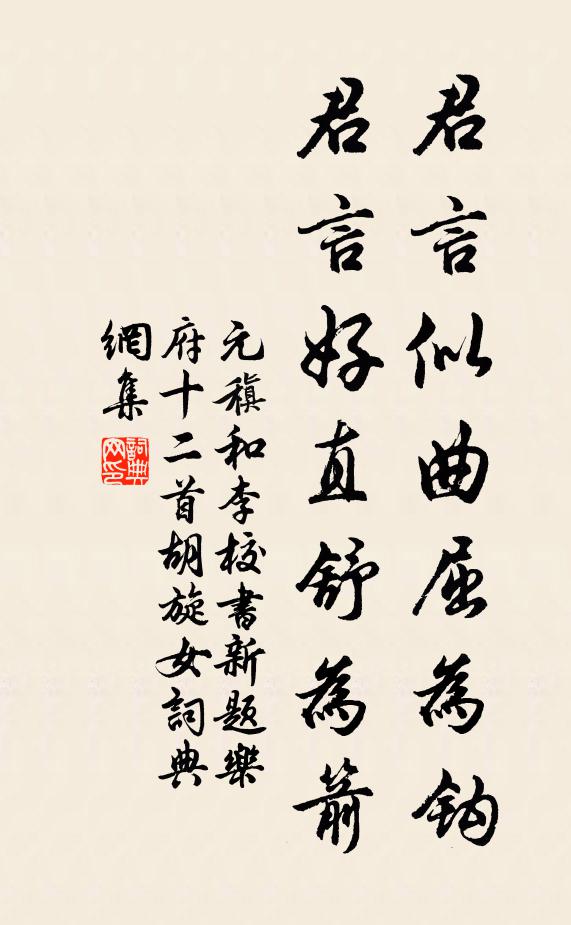 君言似曲屈為鈎
君言好直舒為箭
元稹和李校書新題樂
府十二首胡旋女詞典
網集
詞典網印